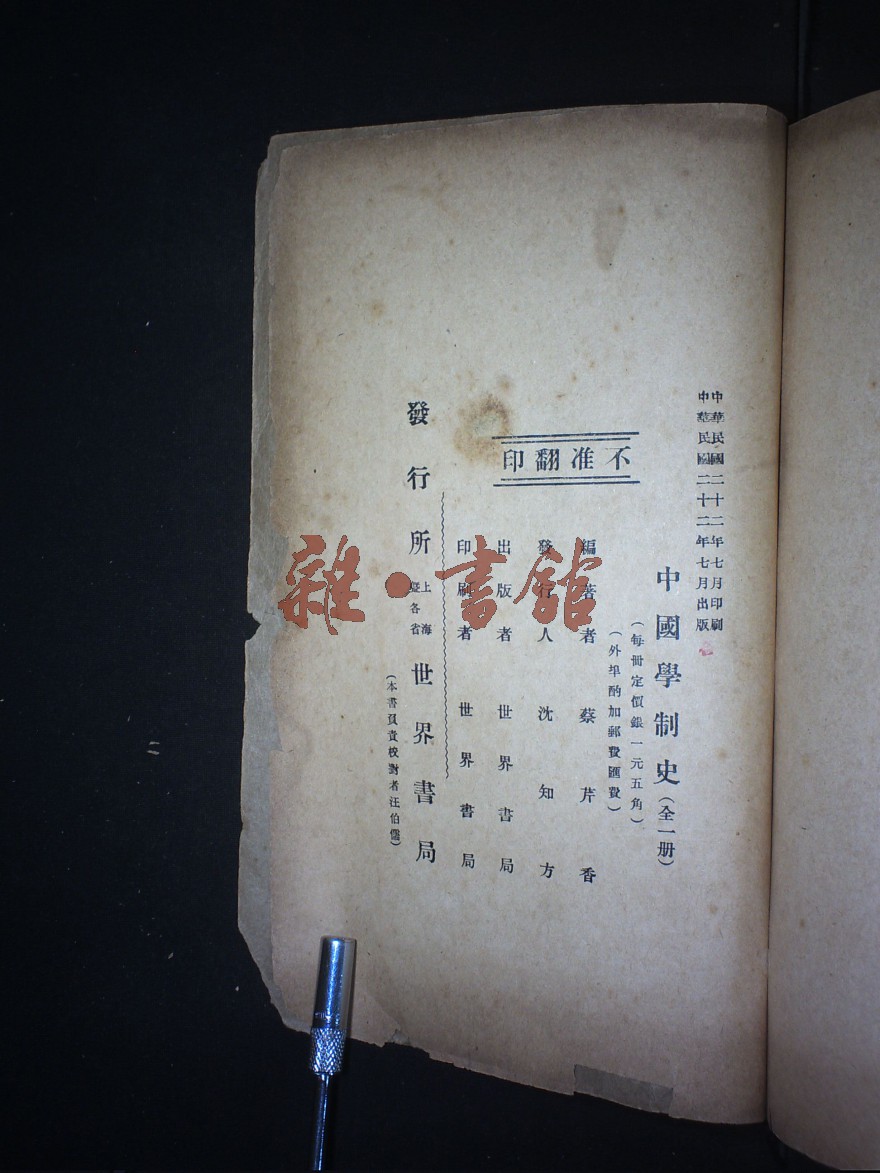 中華民國二十二年七月印刷
中華民國二十二年七月出版
中國學制史(全一册)
(每冊定價銀一元五角)
(外埠酌加郵費匯費)
不准翻印
編著者 蔡芹香
發行人 沈知方
出版者 世界書局
印刷者 世界書局
發行所 上海暨各省 世界書局
(本書負責校對者汪伯儒)
雜·書館